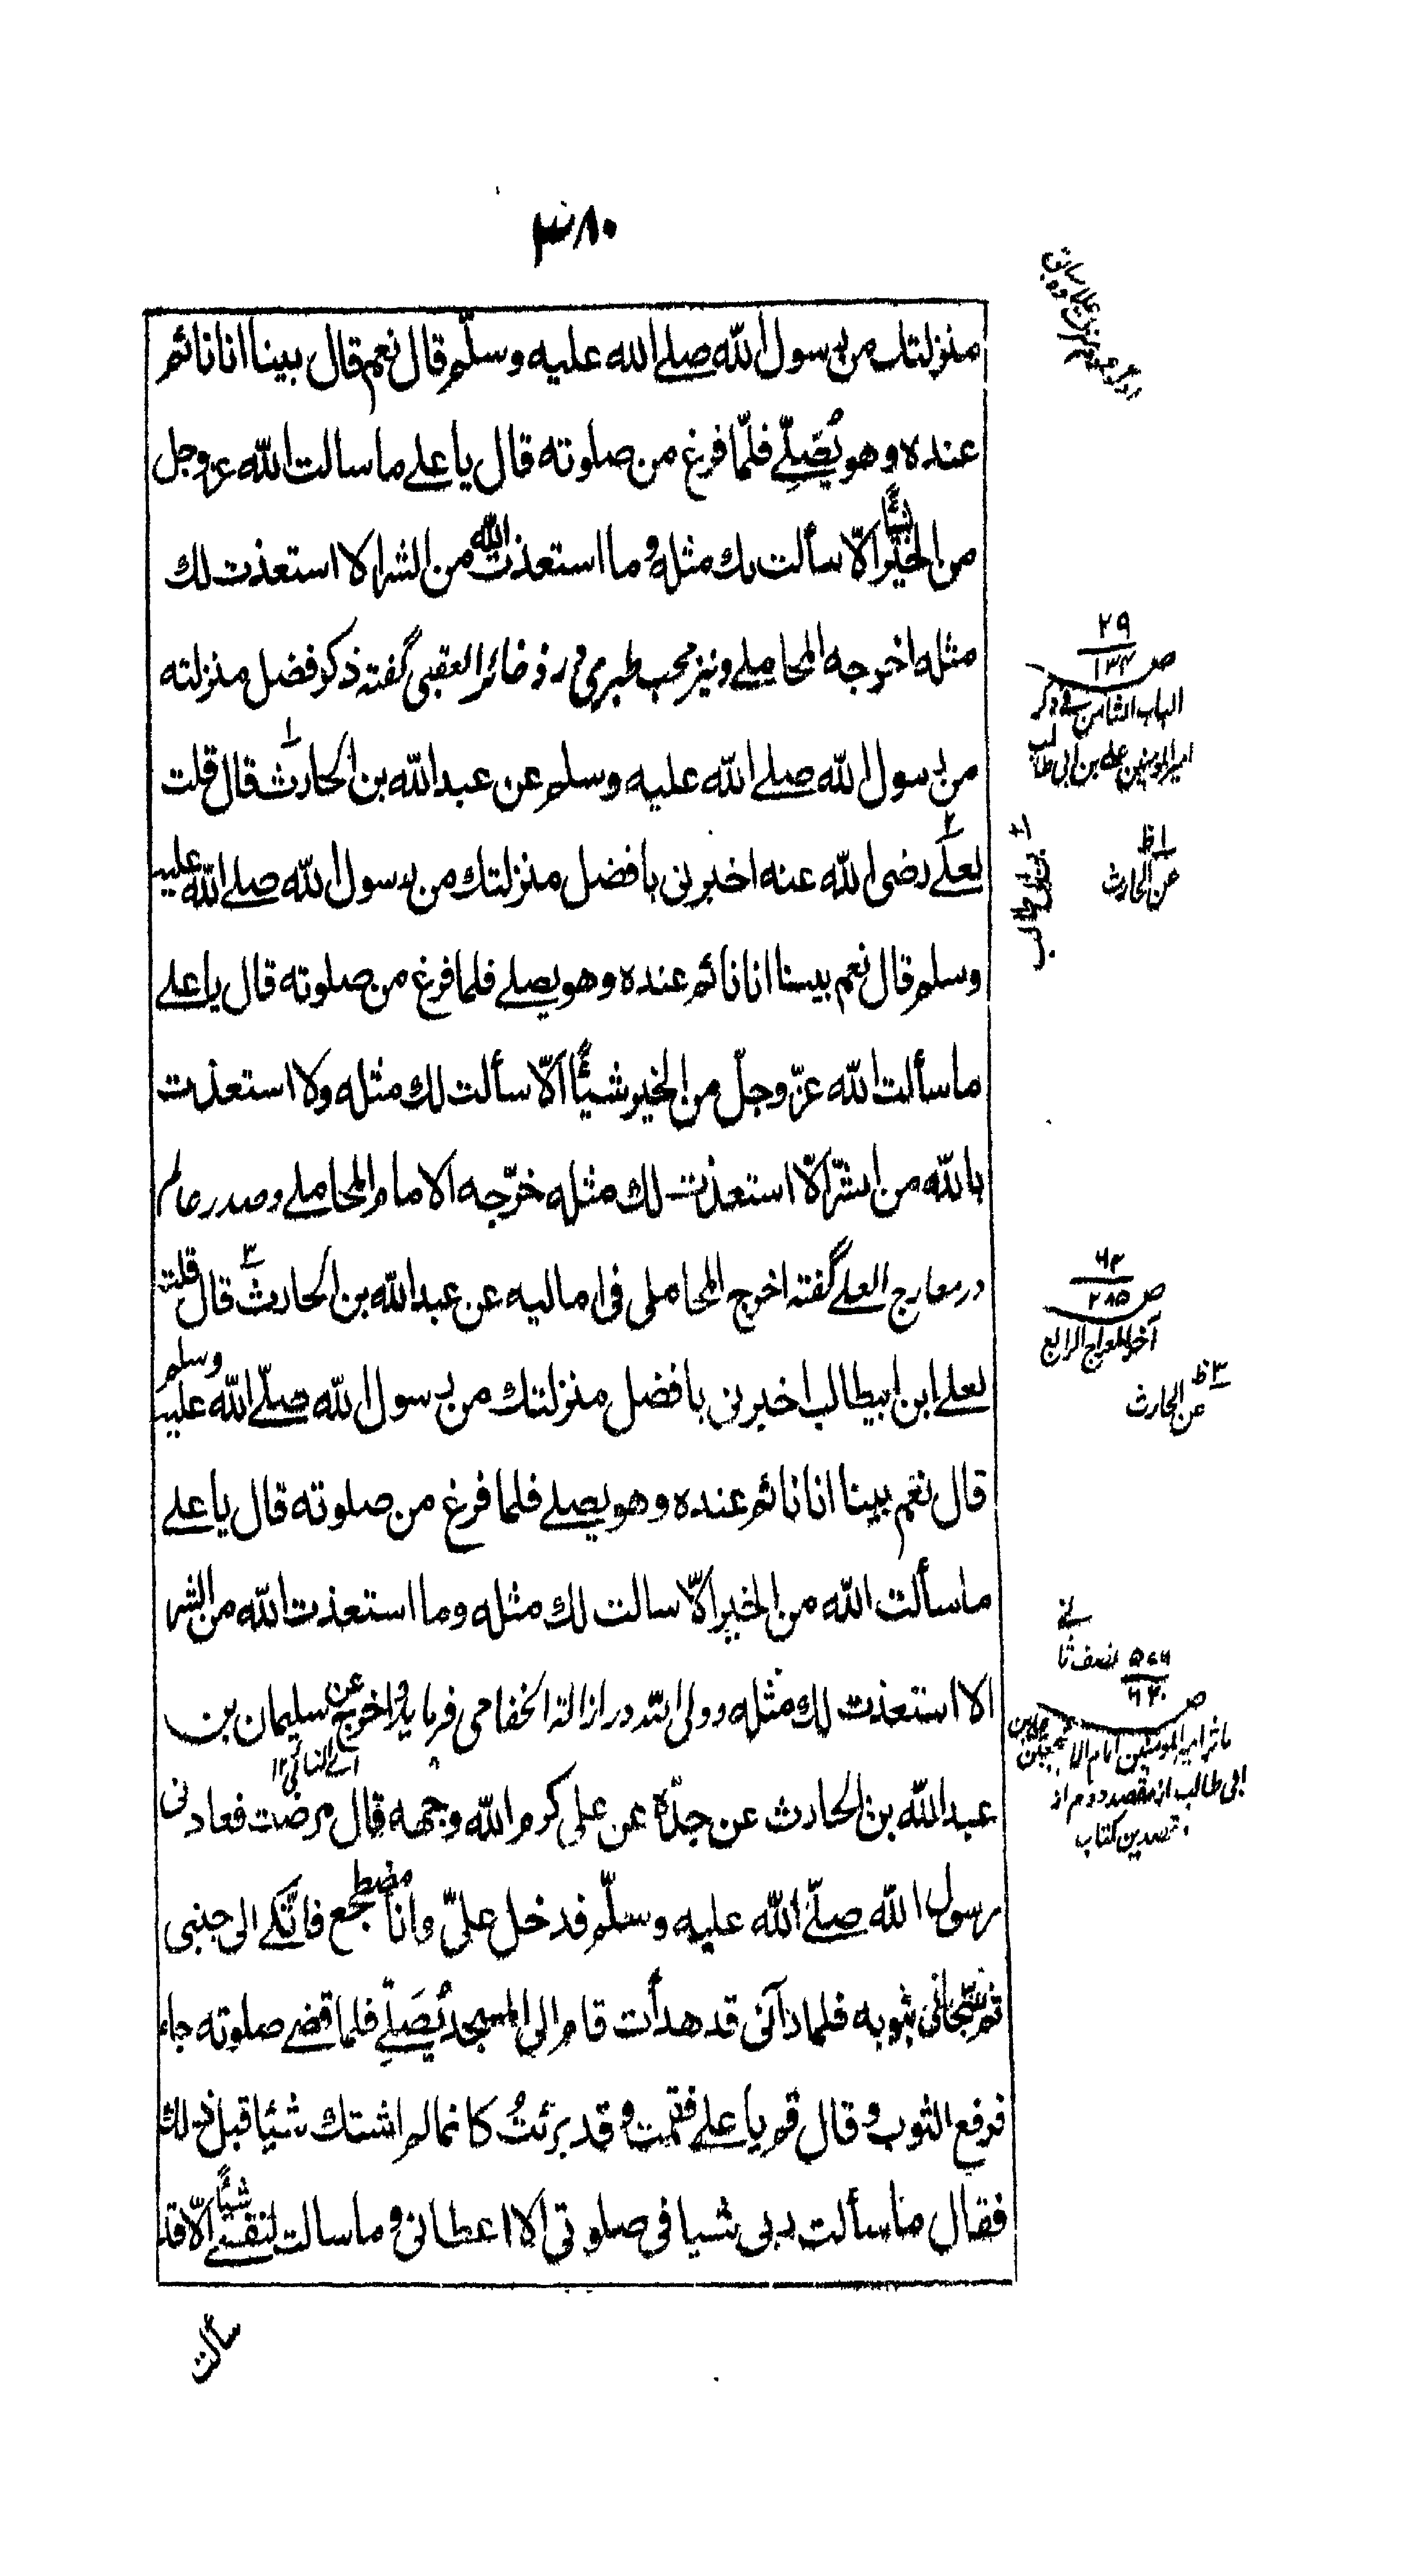 منزلتك من رسول الله صلے الله عليه وسلّم قال نعم قال بينا انا نائم
عنده وهو يُصَلِّے فلمّا فرغ من صلوته قال يا علے ما سالت الله عز وجل
من الخير شيئًا الّا سألت لك مثله وما استعذت الله من الشر الا استعذت لك
مثله اخرجه المحاملے ونيز محب طبري در ذخائر العقبى گفته ذكر فضل منزلته
من رسول الله صلے الله عليه وسلم عن عبد الله بن الحارث قال قلت
لعلے رضى الله عنه اخبرنى بافضل منزلتك من رسول الله صلے الله عليه
وسلم قال نعم بينا انا نائم عنده وهو يصلے فلما فرغ من صلوته قال يا علے
ما سألت الله عزّ وجلّ من الخير شيئًا الّا سألت لك مثله ولا استعذت
بالله من الشرّ الّا استعذت لك مثله خرّجه الامام المحاملے وصدر عالم
در معارج العلے گفته اخرج المحاملى فى اماليه عن عبد الله بن الحارث قال قلت
لعلے ابن ابيطالب اخبرنى بافضل منزلتك من رسول الله صلّے الله عليه وسلم
قال نعم بينا انا نائم عنده وهو يصلے فلما فرغ من صلوته قال يا علے
ما سألت الله من الخير الّا سالت لك مثله وما استعذت الله من الشر
الا استعذت لك مثله وولى الله در ازالة الخفا مى فرمايد واخرج عن سليمان بن
اے النسائى ١٢
عبد الله بن الحارث عن جدّه عن على كرم الله وجهه قال مرضت فعادنى
رسول الله صلّے الله عليه وسلّم فدخل علىّ وانا مضطجع فاتّكے الى جنبى
ثم سجّانى بثوبه فلما رآنى قد هدأت قام الى المسجد يُصَلِّے فلما قضے صلوته جاء
فرفع الثوب وقال قم يا علے فقمت وقد برئتُ كانما لم اشتك شيئا قبل ذلك
فقال ما سألت ربى شيا فى صلوتى الا اعطانى وما سالت لنفسے شيئًا الّا قد
سألت
٢٩
ص ١٣٤
الباب الثامن فے ذكر
امير المومنين علے بن ابى طالب
١ ظ
عن الحارث
٢ بن ابى طالب
٦٣
ص ٢٨٥
آخر المعراج الرابع
٣ ظ
عن الحارث
نصف ثانے
ص ٦٣٠
ماثر امير المومنين امام الاشجعين علے بن
ابى طالب از مقصد دوم از
مقصدين كتاب